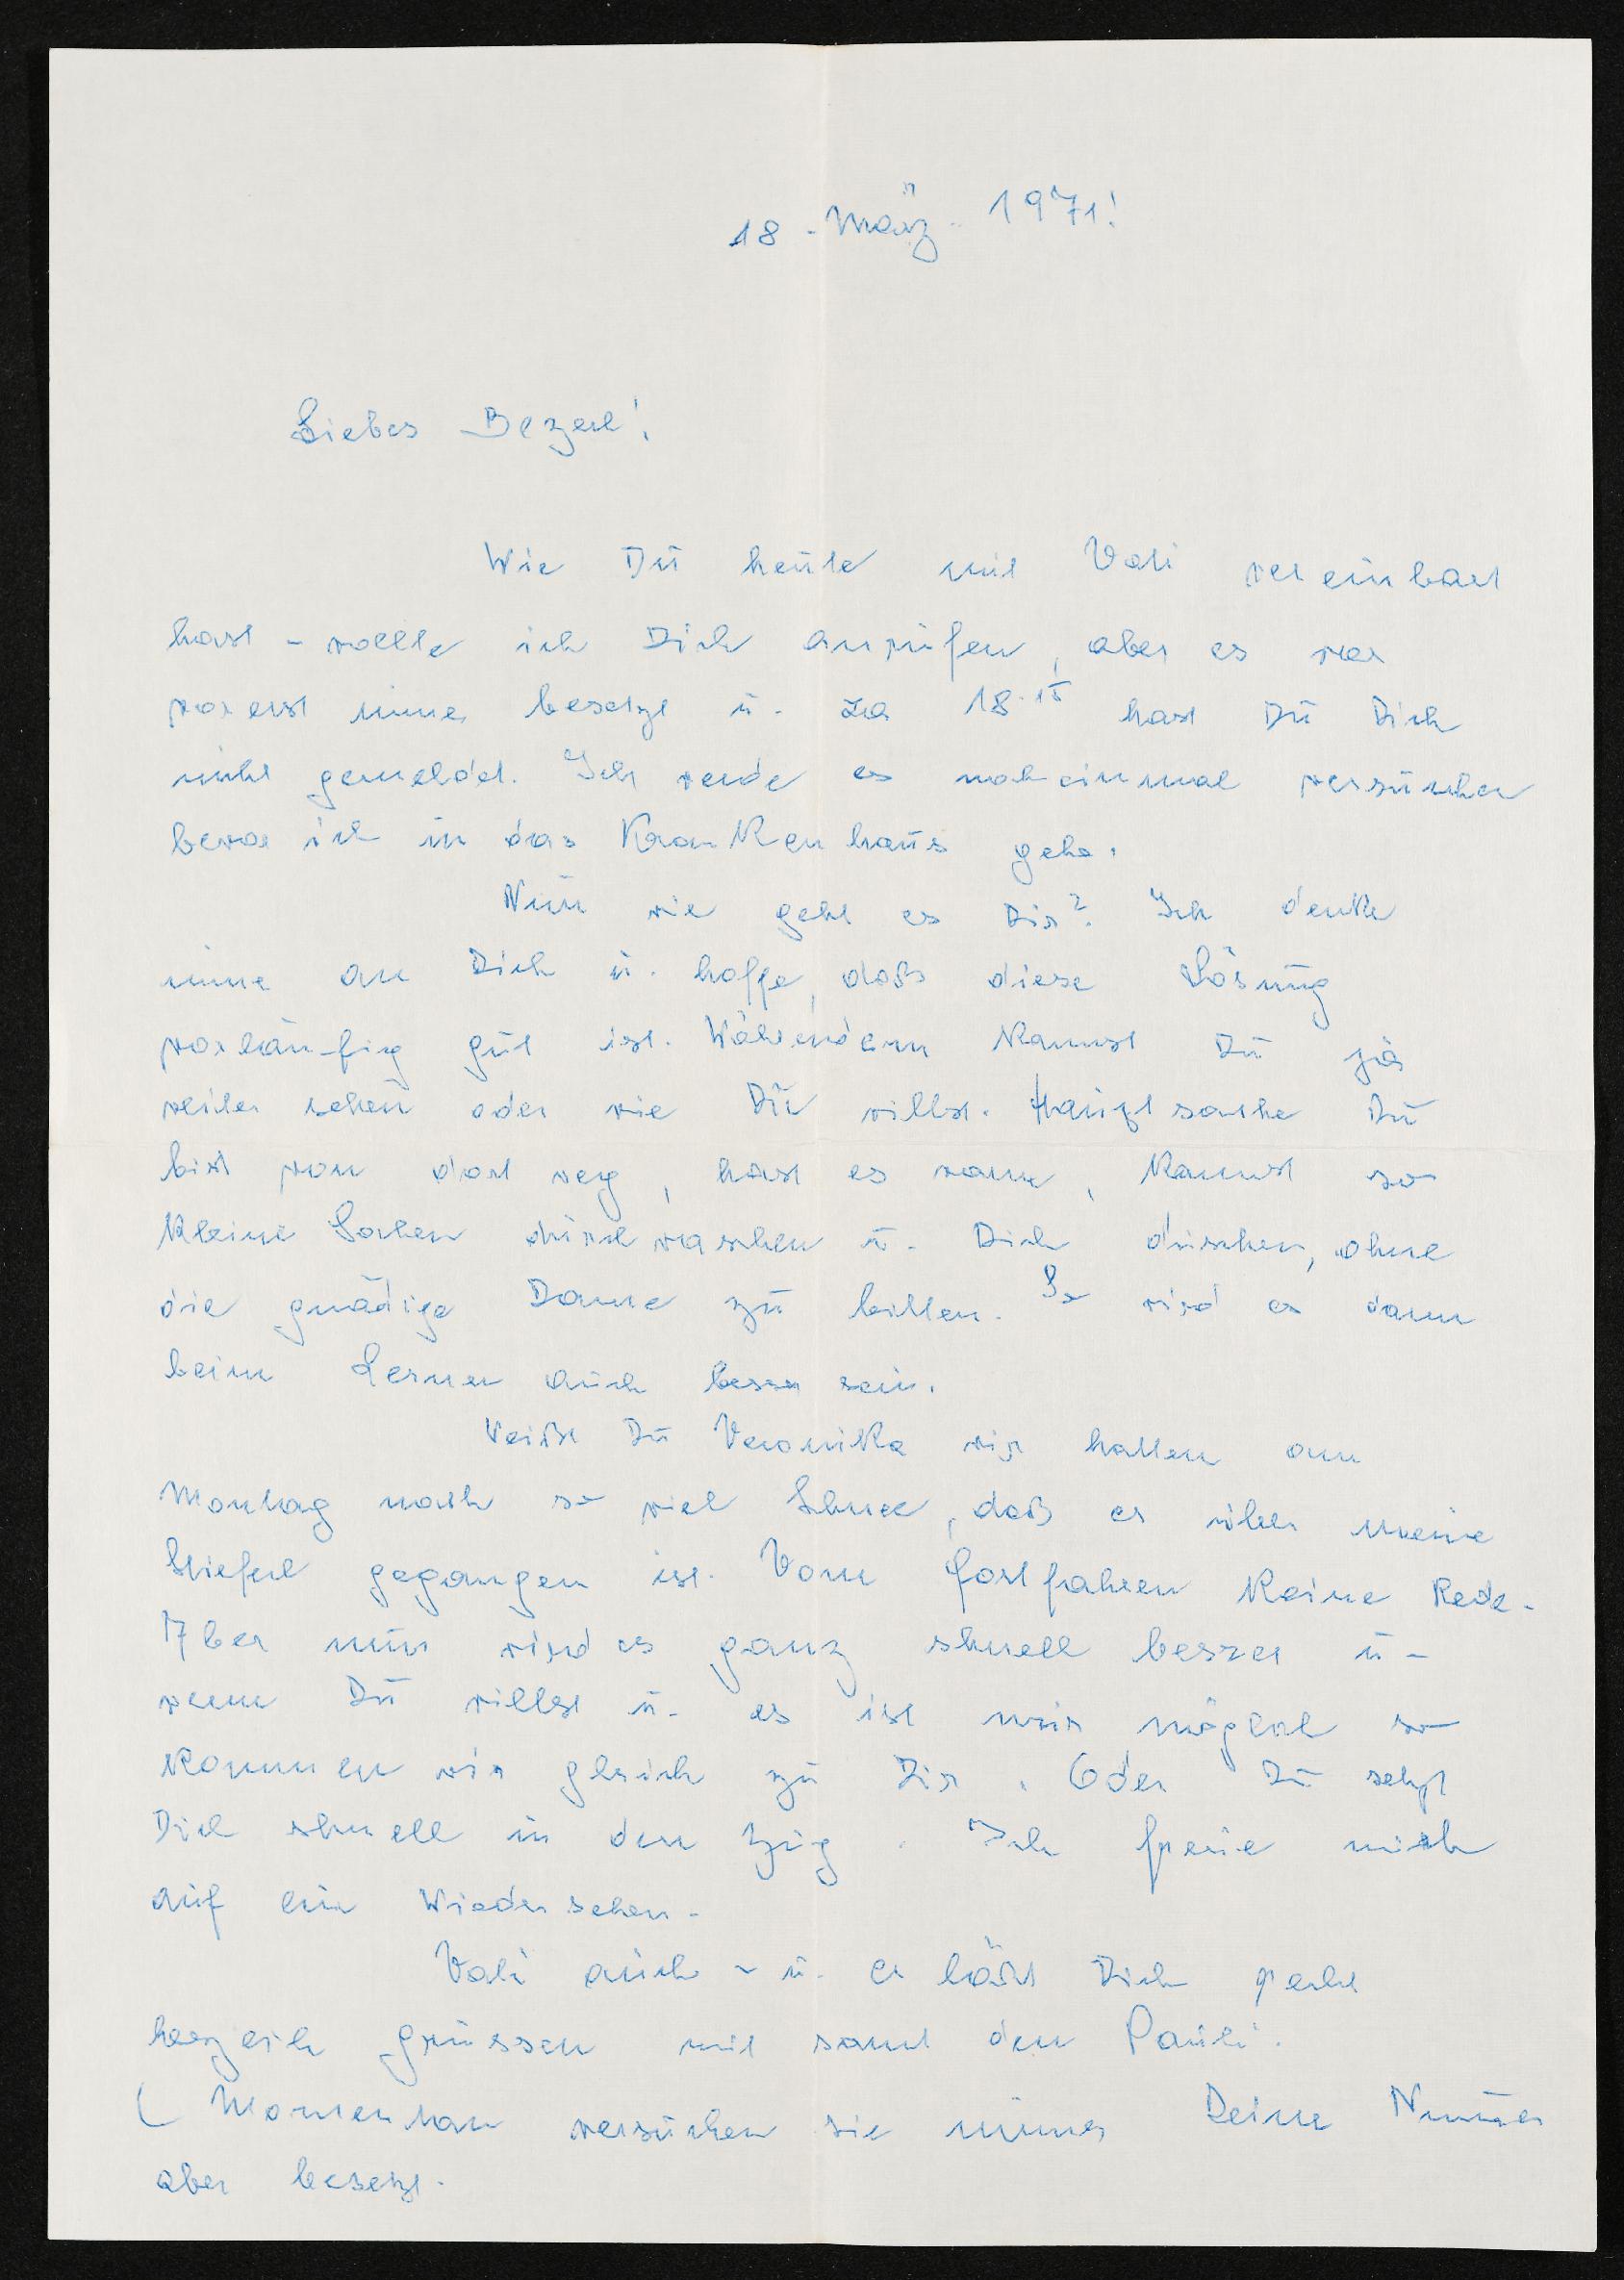 18. März 1971!
Liebes Bezerl!
Wie Du heute mit Vati vereinbart
hast - wollte ich Dich anrufen, aber es war
vorerst immer besetzt u. ca 18.15 hast Du Dich
nicht gemeldet. Ich werde es noch einmal versuchen
bevor ich in das Krankenhaus gehe.
Nun wie geht es Dir? Ich denke
immer an Dich u. hoffe, daß diese Lösung
vorläufig gut ist. Währenddem kannst Du ja
weiter sehen oder wie Du willst. Hauptsache Du
bist von dort weg, hast es warm, kannst so
kleine Sachen durchwaschen u. Dich duschen, ohne
die gnädige Dame zu bitten. So wird es dann
beim Lernen auch besser sein.
Weißt Du Veronika wir hatten am
Montag noch so viel Schnee, daß es über meine
Stieferl gegangen ist. Vom fortfahren keine Rede.
Aber nun wird es ganz schnell besser u.
wenn Du willst u. es ist mir möglich so
kommen wir gleich zu Dir. Oder Du setzt
Dich schnell in den Zug. Ich freue mich
auf ein Wiedersehen.
Vati auch - u. er läßt Dich recht
herzlich grüssen mit samt den Pauli.
(Momentan versuchen sie immer Deine Nummer
aber besetzt.